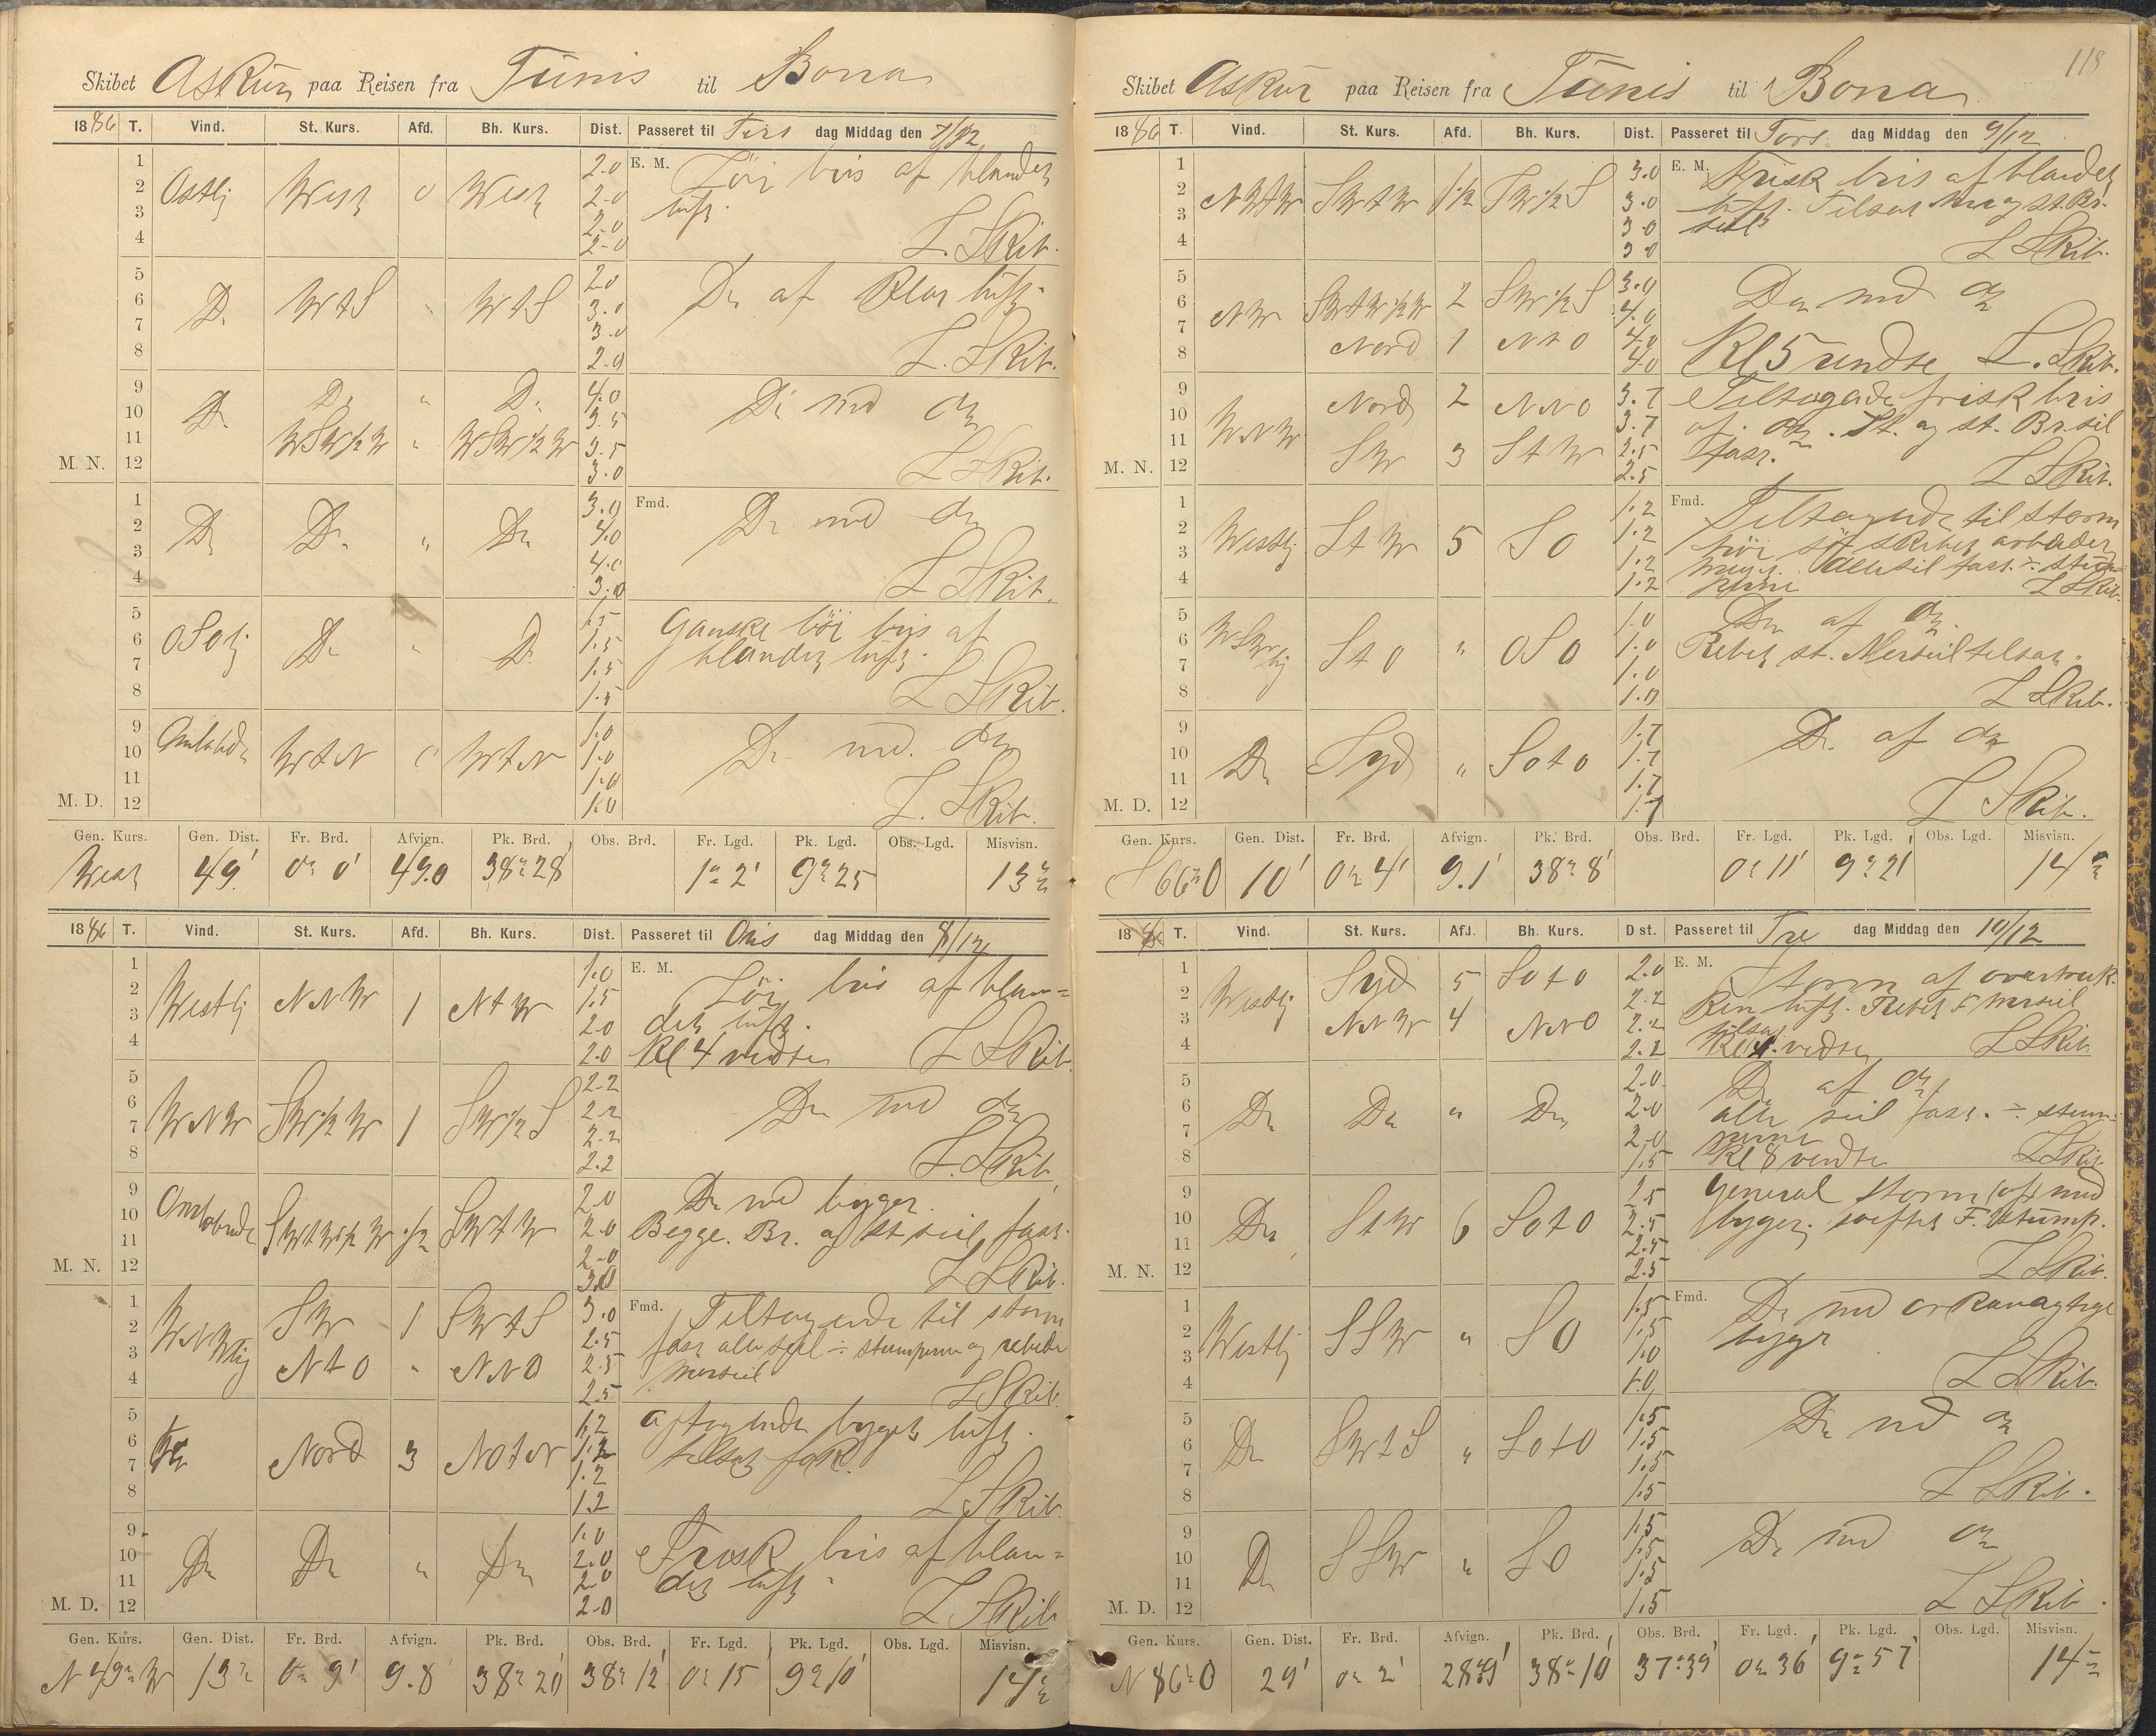 Skibet Askur paa Reisen fra Tunis til Bona
1886 T. Vind. St. Kurs. Afd. Bh. Kurs. Dist. Passeret til Tirs dag Middag den 7/12
1 2.0 E. M. Löi bris af blandet
2 Ostlig West 0 West 2.0 luft.
3 2.0
4 2.0 L. Skib.
5 2.0
6 Do WtS " WtS 3.0 Do af klar luft.
7 3.0
8 2.0 L. Skib.
9 Do " Do 4.0
10 Do 3.5 Do med do
11 WSW½W " WSW½W 3.5
M. N. 12 3.0 L Skib.
1 3.0 Fmd.
2 Do Do " Do 4.0 Do med do
3 4.0
4 3.0 L Skib.
5 1.5 Ganske löi bris af
6 OSolig Do " Do 1.5 blandet luft.
7 1.5
8 1.5 L Skib.
9 1.0
10 Omløbde WtN 0 WtN 1.0 Do med. do
11 1.0
M. D. 12 1.0 L. Skib.
Gen. Kurs. Gen. Dist. Fr. Brd. Afvign. Pk. Brd. Obs. Brd. Fr. Lgd. Pk. Lgd. Obs. Lgd. Misvisn.
West 49' 0° 0' 49.0 38° 28' 1° 2' 9° 25 13°
1886 T. Vind. St. Kurs. Afd. Bh. Kurs. Dist. Passeret til Ons dag Middag den 8/12
1 1.0 E. M. Löi bris af blan=
2 Westlig NNW 1 NtW 1.5 det luft.
3 2.0
4 2.0 Kl 4 vendte L Skib.
5 2.2
6 WNW SW½W 1 SW½S 2.2 Do med do
7 2.2
8 2.2 L. Skib.
9 2.0 Do med byger.
10 Omløbende SWtW½W ½ SWtW 2.0 Begge. Br. og St seil fast.
11 2.0
M. N. 12 3.0 L Skib.
1 SW 1 SWtS 3.0 Fmd. Tiltagende til storm
2 WNWlig 2.5 fast alle seil ÷ stumperne og rebede
3 NtO " NNO 2.5 merseil
4 2.5 L Skib.
5 1.2 aftagende byget luft.
6 Do Nord 3 NOtN 1.2 tilsat fok.
7 1.2
8 1.2 L Skib.
9 1.0 Frisk bris af blan=
10 Do Do " Do 2.0 det luft.
11 2.0
M. D. 12 2.0 L Skib
Gen. Kurs. Gen. Dist. Fr. Brd. Afvign. Pk. Brd. Obs. Brd. Fr. Lgd. Pk. Lgd. Obs. Lgd. Misvisn.
N 49° W 13 0° 9' 9.8 38° 20' 38° 12' 0° 15' 9° 10' 14°
118
Skibet Askur paa Reisen fra Tunis til Bona
1886 T. Vind. St. Kurs. Afd. Bh. Kurs. Dist. Passeret til Tors dag Middag den 9/12
1 3.0 E. M. Frisk bris af blandet
2 NWtW SWtW 1½ SW½S 3.0 luft. Tilsat og st. Br.
3 3.0 seil
4 3.0 L Skib.
5 3.0
6 NW SWtW½W 2 SW½S 4.0 Do med do
7 Nord 1 NtO 4.0
8 4.0 Kl 5 vendte L. Skib.
9 Nord 2 NNO 3.7 Tiltagende frisk bris
10 WNW 3.7 af do. St. og st. Br. seil
11 SW 3 StW 2.5 fast.
M. N. 12 2.5 L Skib.
1 1.2 Fmd. Tiltagende til storm
2 Westlig StW 5 SO 1.2 höi sö skibet arbeider
3 1.2 meget. alle seil fast ÷ stum=
4 1.2 perne L Skib.
5 1.0 Do af do.
6 WSWlig StO " OSO 1.0 Rebet st. Merseil tilsat.
7 1.0
8 1.0 L Skib.
9 1.7
10 Do Syd " SOtO 1.7 Do. af do
11 1.7
M. D. 12 1.7 L Skib.
Gen. Kurs. Gen. Dist. Fr. Brd. Afvign. Pk. Brd. Obs. Brd. Fr. Lgd. Pk. Lgd. Obs. Lgd. Misvisn.
S 66° O 10' 0° 4' 9.1' 38° 8' 0° 11' 9° 21' 14°
1886 T. Vind. St. Kurs. Afd. Bh. Kurs. Dist. Passeret til Fre dag Middag den 10/12
1 Syd 5 SOtO 2.0 E. M. Storm af overtruk=
2 Westlig 2.2 ken luft. Rebet F merseil
3 NNW 4 NNO 2.2 tilsat
4 2.2 Kl 4. vendte L Skib
5 2.0 Do af do
6 Do Do " Do 2.0 alle seil fast. ÷ stum=
7 2.0 perne
8 1.5 Kl 8 vendte L Skib
9 2.5 General storm af med
10 Do StW 6 SOtO 2.5 byger. F. stump.
11 2.5
M. N. 12 2.5 L Skib.
1 1.5 Fmd. Do med orkanagtige
2 Westlig SSW " SO 1.5 byger
3 1.0
4 1.0 L Skib.
5 1.5 Do med do
6 Do SWtS " SOtO 1.5
7 1.5
8 1.5 L Skib.
9 1.5
10 Do SSW " SO 1.5 Do med do
11 1.5
M. D. 12 1.5 L Skib.
Gen. Kurs. Gen. Dist. Fr. Brd. Afvign. Pk. Brd. Obs. Brd. Fr. Lgd. Pk. Lgd. Obs. Lgd. Misvisn.
N 86° O 29' 0° 2' 38° 10' 37° 39' 0° 36' 9° 57' 14°